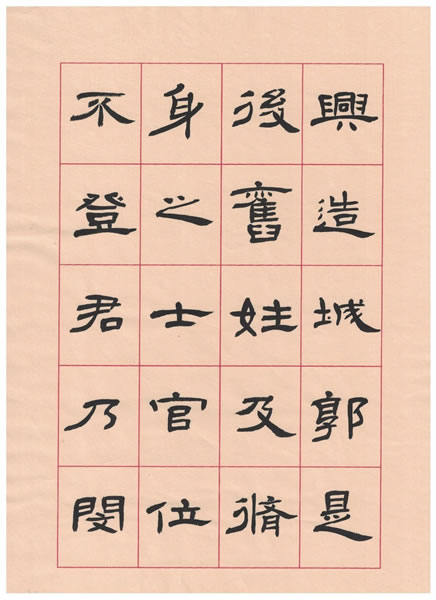 興造城郭是
後舊姓及脩
身之士官位
不登君乃閔